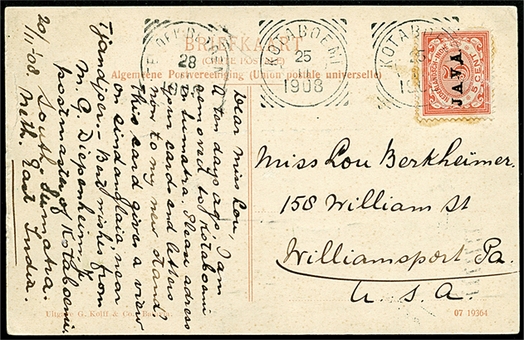 BRIEFKAART
(CARTE POSTALE)
Algemeene Postvereeniging (Union postale universelle)
KOTABOEMI
25
1908
KOTABOEMI
25
28
JAVA
5
CENT
Dear Miss Lou,
A ten days ago, I am
removed to Kotaboemi
in Sumatra. Please adress
your cards and letters
now to my new stand.
This card gives a view
on Sindanglaia, near
Tjandjoer - Best wishes from
M. G. Diepenheim, Jr
postmaster of Kotaboemi,
South Sumatra.
20/11-08 Neth. East India.
Miss Lou Berkheimer.
158 William St
Williamsport Pa.
U.S.A.
Uitgave G. Kolff & Co., Batavia.
07 19364